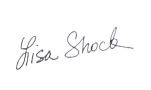 Lisa Shock